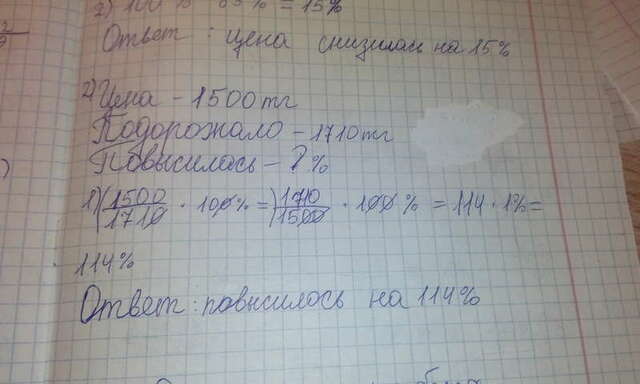 2) 100% - 85% = 15%
Ответ: цена снизилась на 15%
2) Цена - 1500 тг
Подорожало - 1710 тг
Повысилась - ? %
1) (1500/1710 · 100% =) 1710/1500 · 100% = 114 · 1% =
114%
Ответ: повысилось на 114%